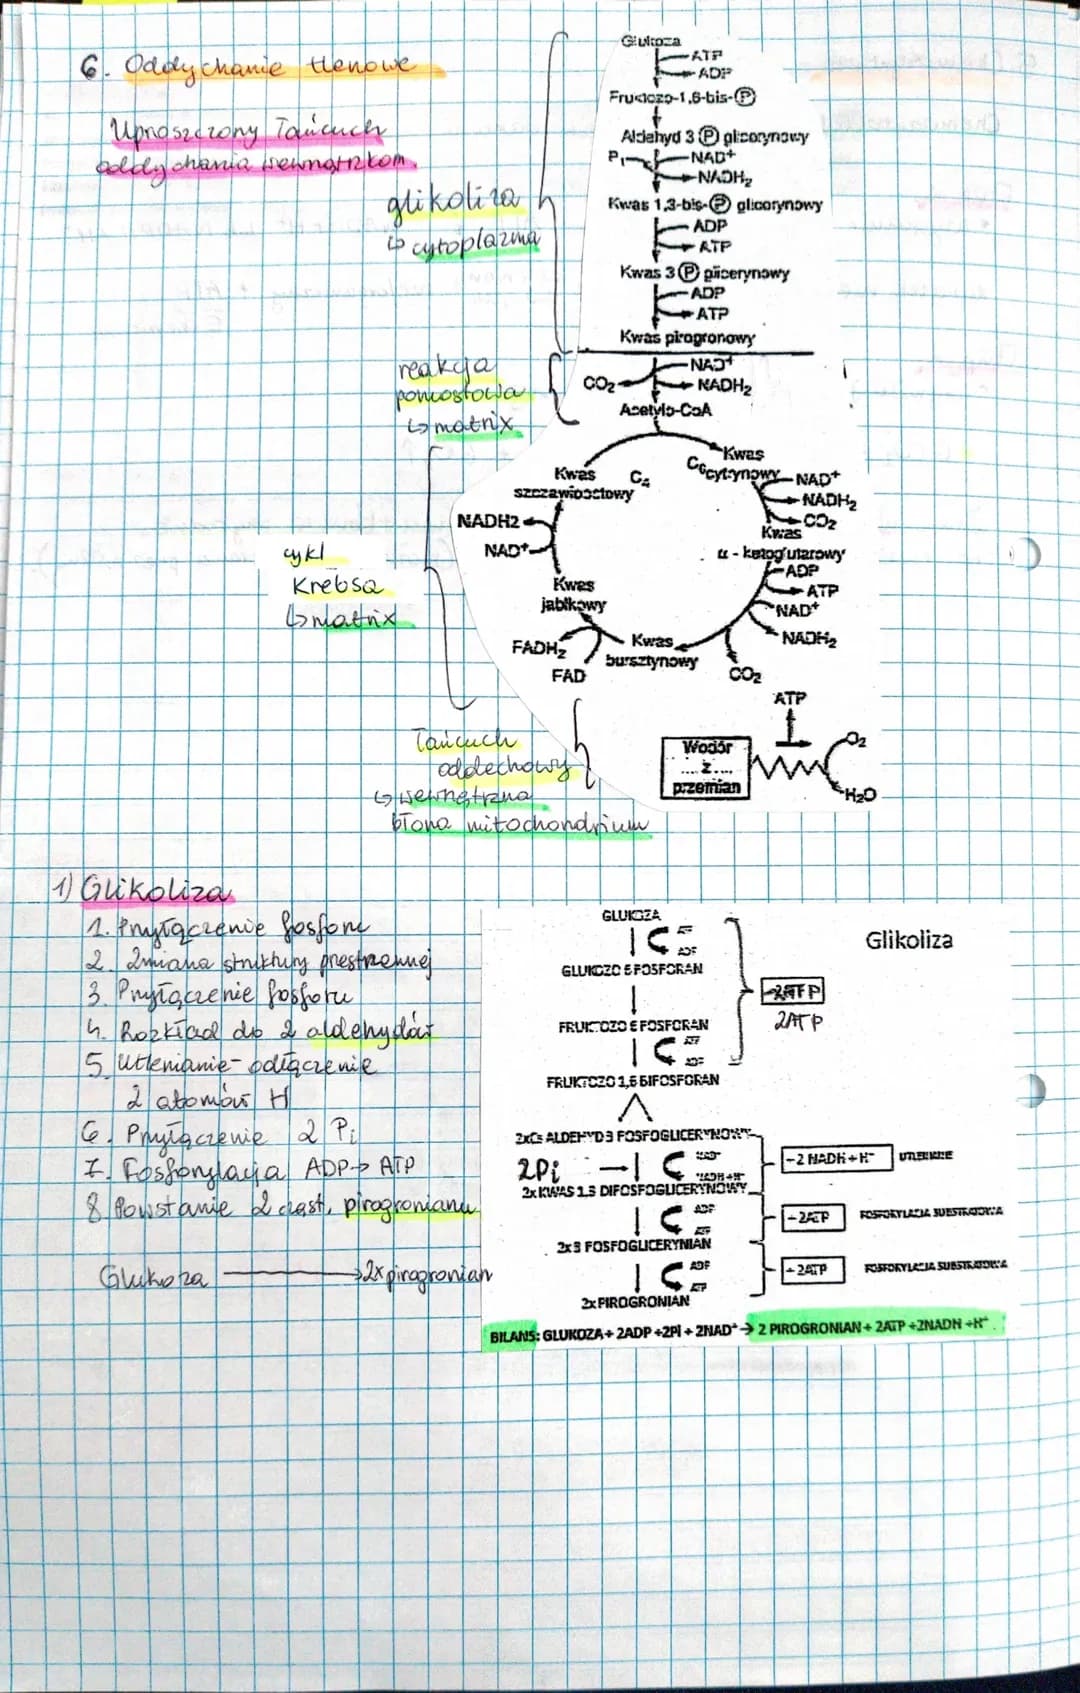 6. Oddychanie tlenowe
Uproszczony łańcuch
oddychania wewnątrzkom.
glikoliza
↳ cytoplazma
Glukoza
ATP
ADP
Fruktozo-1,6-bis-Ⓟ
Aldehyd 3 Ⓟ glicerynowy
Pi
NAD+
NADH2
Kwas 1,3-bis-Ⓟ glicerynowy
ADP
ATP
Kwas 3 Ⓟ glicerynowy
ADP
ATP
Kwas pirogronowy
reakcja
pomostowa
↳ matrix
NAD+
CO2
NADH2
Acetylo-CoA
cykl
Krebsa
↳ matrix
Kwas
C6 cytrynowy
NAD+
NADH2
CO2
Kwas
α - ketoglutarowy
ADP
ATP
NAD+
NADH2
CO2
Kwas
bursztynowy
FADH2
FAD
Kwas
jabłkowy
NADH2
NAD+
Kwas C4
szczawiooctowy
łańcuch
oddechowy
↳ wewnętrzna
błona mitochondrium
ATP
Wodór
....z....
przemian
O2
H2O
1) Glikoliza
1. Przyłączenie fosforu
2. Zmiana struktury przestrzennej
3. Przyłączenie fosforu
4. Rozkład do 2 aldehydów
5. Utlenianie - odłączenie
2 atomów H
6. Przyłączenie 2 Pi
7. Fosforylacja ADP→ ATP
8. Powstanie 2 cząst. pirogronianu
Glukoza → 2x pirogronian
Glikoliza
GLUKOZA
ATP
ADP
GLUKOZO 6 FOSFORAN
FRUKTOZO 6 FOSFORAN
ATP
ADP
FRUKTOZO 1,6 BIFOSFORAN
-2ATP
2ATP
2xC3 ALDEHYD 3 FOSFOGLICERYNOWY
2Pi
NAD+
NADH+H+
-2 NADH+H+ UTLENIENIE
2x KWAS 1.3 DIFOSFOGLICERYNOWY
ADP
ATP
-2ATP FOSFORYLACJA SUBSTRATOWA
2x3 FOSFOGLICERYNIAN
ADP
ATP
-2ATP FOSFORYLACJA SUBSTRATOWA
2x PIROGRONIAN
BILANS: GLUKOZA + 2ADP +2Pi + 2NAD+ → 2 PIROGRONIAN + 2ATP +2NADH +H+.